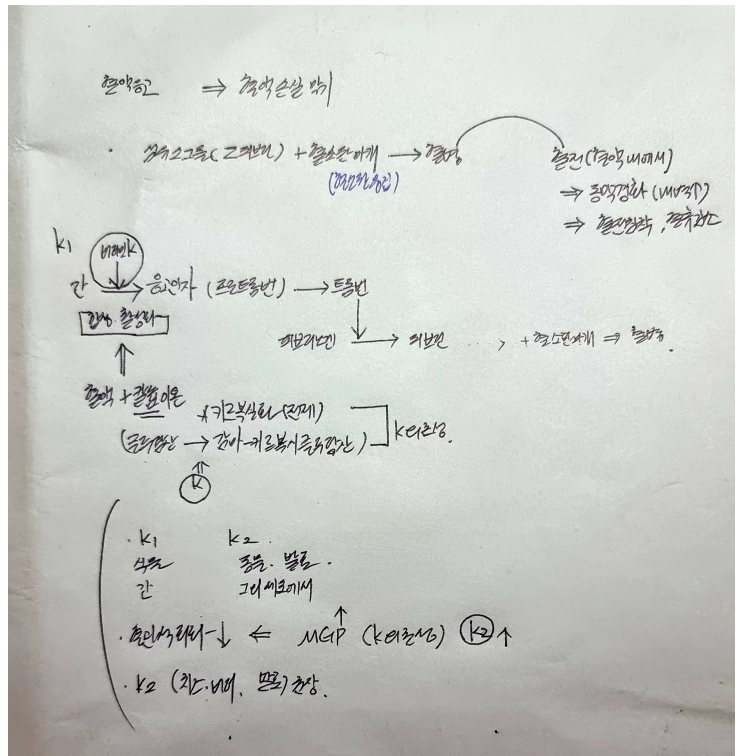 혈액응고 ⇒ 혈액손실 막기
· 섬유소그물(피브린) + 혈소판마개 → 혈병
(혈소판응집)
혈전(혈액내에서)
⇒ 동맥경화 (내벽↑)
⇒ 혈전침착, 혈류감소
K1
비타민K
간 → 응고인자 (프로트롬빈) → 트롬빈
합성·활성화
피브리노겐 → 피브린 ..., + 혈소판마개 ⇒ 혈병.
혈액 + 칼슘이온
*카르복실화(전제)
(글루탐산 → 감마-카르복시글루탐산)
K의존성.
K
· K1 K2.
식물 동물. 발효.
간 그외세포에서
· 혈관석회화↓ ⇐ MGP↑ (K의존성) K2↑
· K2 (치즈·버터, ) 권장.